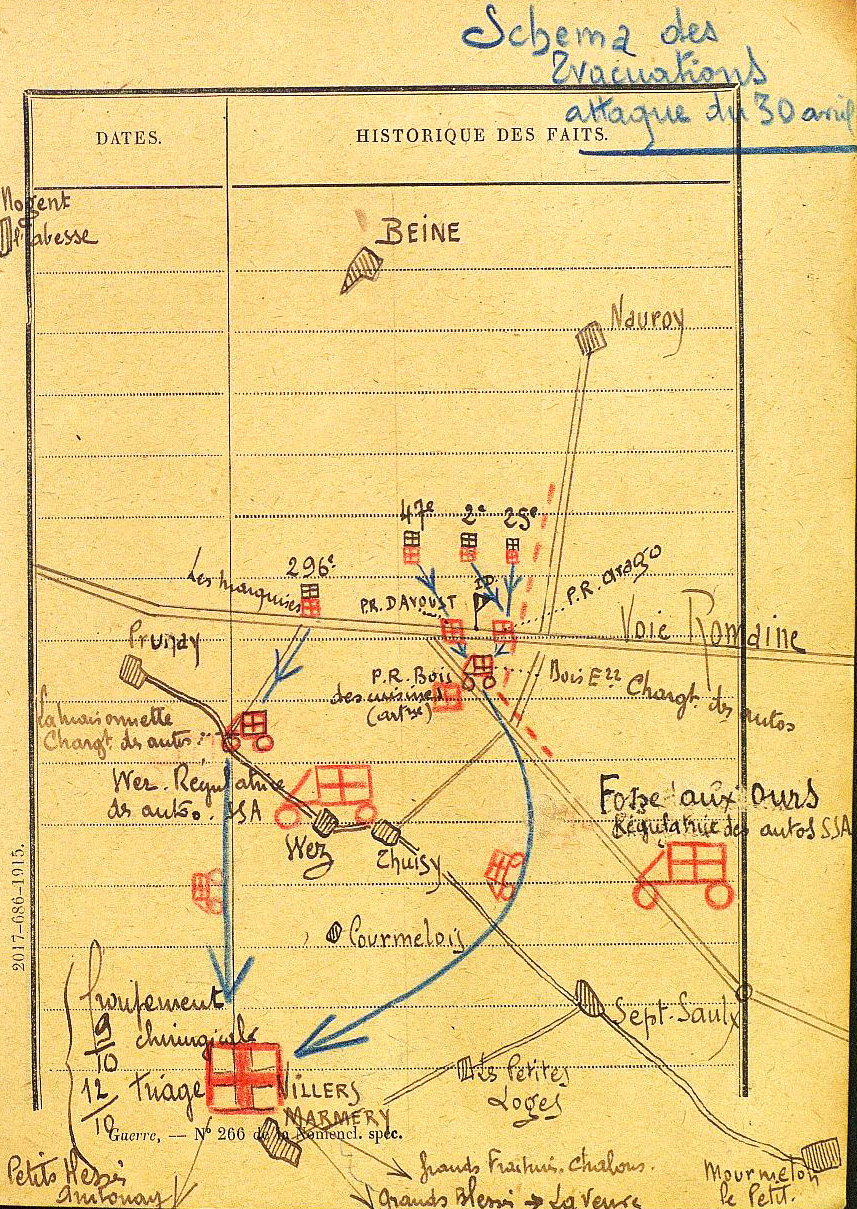 Schema des
Evacuations
attaque du 30 avril
DATES.
HISTORIQUE DES FAITS.
Nogent
l'abesse
BEINE
Nauroy
47e
2e
25e
296e
Les marquises
P.R. DAVOUST
P.R. Arago
Voie Romaine
Prunay
P.R. Bois
des cuisines
Bois E22 Chargt des autos
La maisonnette
Chargt des autos
Wez. Régulatrice
des autos. SSA
Wez
Thuisy
Fosse aux Ours
Régulatrice des autos SSA
Courmelois
2017-686-1915.
Groupement
chirurgical
9/10
12/10
Triage
VILLERS
MARMERY
Sept-Saulx
Les Petites
Loges
Guerre, — No 266 de la Nomencl. spéc.
Petits Blessés
Ambonay
Grands Fracturés. Chalons.
Grands Blessés → La Veuve
Mourmelon
le Petit.